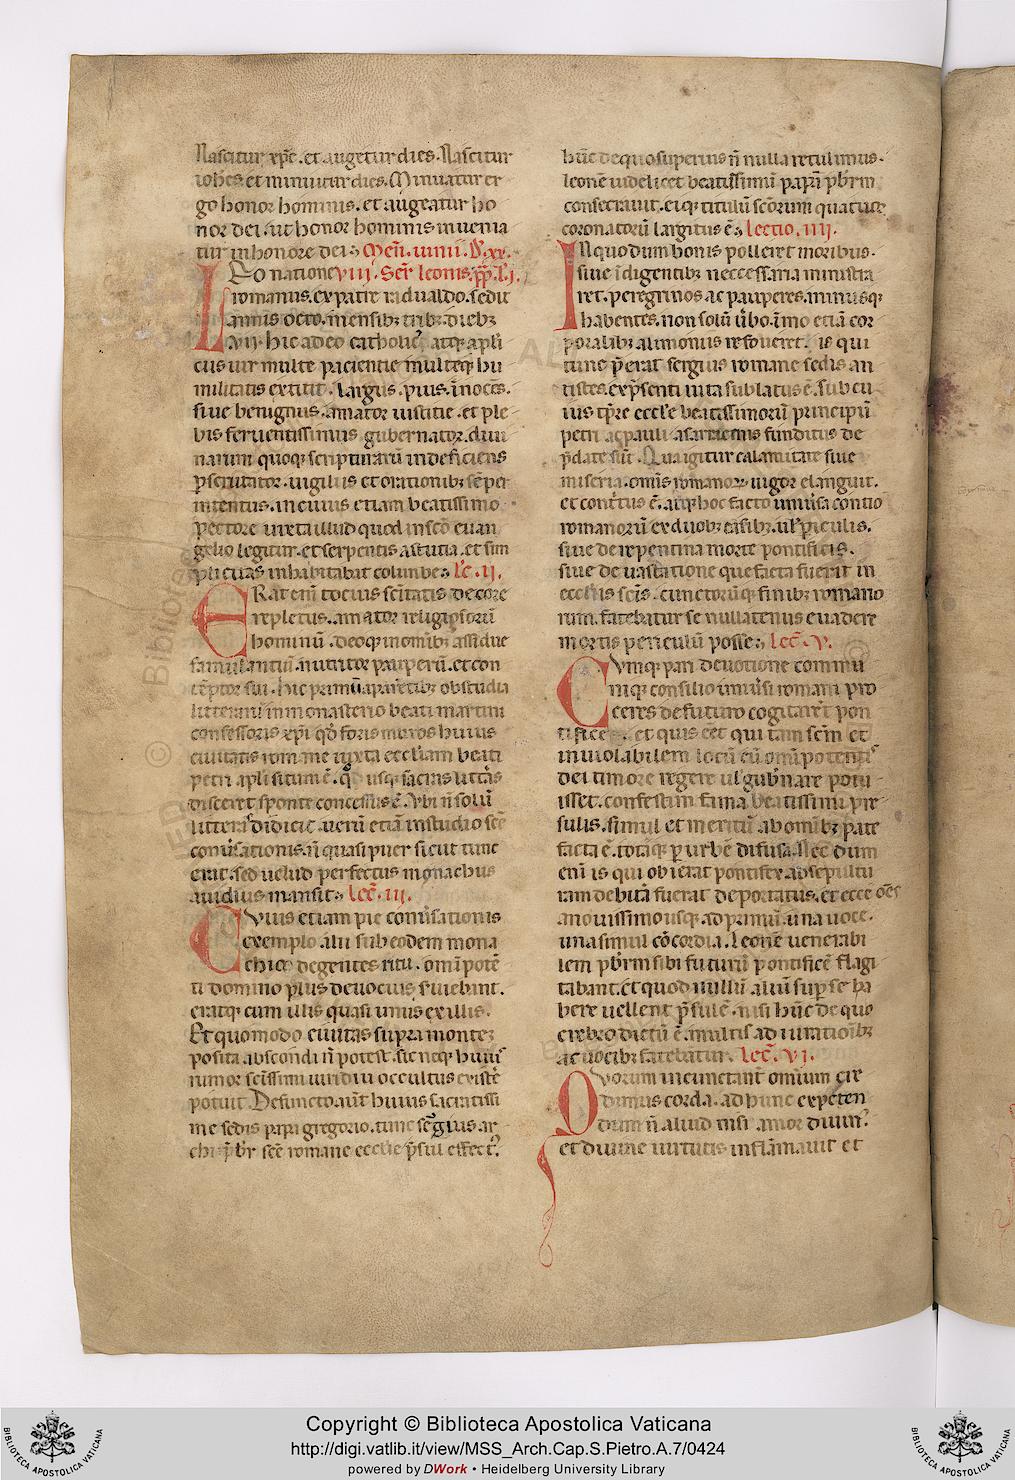 Nascitur xp̄c. et augetur dies. Nascitur
ioh̄es et minuitur dies. Minuatur er
go honor hominis. et augeatur ho
nor dei. ut honor hominis inuenia
tur in honore dei.
Leo natione
romanus. ex patre radualdo. sedit
annis octo. mensibꝫ tribꝫ. diebꝫ
hic adeo catholic᷒ atqꝫ apłi
cus uir multe pacientie multeqꝫ hu
militatis extitit. largus. pius. īnocēs.
siue benignus. amator iustitie. et ple
bis feruentissimus gubernator. diui
narum quoqꝫ scripturarū indeficiens
ꝑscrutator. uigiliis et orationibꝫ sēper
intentus. in cuius etiam beatissimo
pectore iuxta illud quod in scō euan
gelio legitur. et serpentis astutia. et sim
plicitas inhabitabat columbe. lc̄. ii.
Erat enī tocius sc̄itatis decore
repletus. amator religiosorū
hominū. deoqꝫ inomībꝫ assidue
famulantiū. nutritor pauperū. et con
tēptor sui. hic primū a parētibꝫ ob studia
litterarū in monasterio beati martini
confessoris xp̄i qd̄ foris muros huius
ciuitatis rome iuxta eccl̄iam beati
petri apłi situm ē. qd̄ usqꝫ sacras litt̄as
disceret sponte concessus ē. Vbi ñ solū
litteras didicit. uerū etiā in studio sc̄e
conūsationis. ñ quasi puer sicut tunc
erat. sed uelud perfectus monachus
auidius mansit. Lec̄. iii.
Cuius etiam pie conūsationis
exemplo alii sub eodem mona
chico degentes ritu. omīpotē
ti domino ꝑlus deuocius s̄uiebant.
eratqꝫ cum illis quasi unus ex illis.
Et quomodo ciuitas supra montem
posita abscondi ñ potest. sic neqꝫ huius
rumor sc̄issimi uiri diu occultus existē
potuit. Defuncto aut̄ huius sacratissi
me sedis papa gregorio. tunc sergius ar
chip̄br̄ sc̄e romane eccl̄ie p̄sul effect᷒.
hūc de quo superius ñ nulla retulimus.
leonē uidelicet beatissimū papā p̄br̄m
consecrauit. eiqꝫ titulū sc̄orum quatuor
coronatorū largitus ē. lectio. iiii.
In quo dum bonis polleret moribus.
siue īdigentibꝫ neccessaria ministra
ret. peregrinos ac pauperes. minusqꝫ
habentes. non solū ūbo. īmo etiā cor
poralibꝫ alimoniis refoueret. is qui
tunc p̄erat sergius romane sedis an
tistes. ex p̄senti uita sublatus ē. sub cu
ius tp̄re eccl̄e beatissimorū principū
petri ac pauli a sarracenis funditus de
p̄date sūt. Qua igitur calamitate siue
miseria. omīs romanoꝝ uigor elanguit.
et contritus ē. atqꝫ hoc facto uniūsa contio
romanorū ex duobꝫ casibꝫ. ul̄ ꝑiculis.
siue de repentina morte pontificis.
siue de uastatione que facta fuerit in
eccl̄iis sc̄is. cunctorūqꝫ finibꝫ romano
rum. fatebatur se nullatenus euadere
mortis periculū posse. Lec̄. v.
Cumqꝫ pari deuotione commu
niqꝫ consilio uniūsi romani pro
ceres de futuro cogitarēt pon
tifice. et quis eēt qui tam sc̄m et
inuiolabilem locū cū omīpotentis
dei timore regere ul̄ gub̄nare potu
isset. confestim fama beatissimi pre
sulis. simul et meritū. ab omībꝫ pate
facta ē. totāqꝫ ꝑ urbē difusa. Nec̄ dum
enī is qui obierat pontifex. ab sepultu
ram debitā fuerat deportatus. et ecce oēs
a nouissimo usqꝫ ad primū. una uoce.
una simul cōcordia. leonē uenerabi
lem p̄br̄m sibi futurū pontificē flagi
tabant. Et quod nullū aliū suꝑ se ha
bere uellent p̄sulē. nisi hūc de quo
crebro dictū ē. multis adiuratiōibꝫ
ac uocibꝫ fatebatur. Lec̄. vi.
Quorum incunctanter omīum cre
didimus corda. ad hunc expeten
dum ñ aliud nisi amor diuin᷒.
et diuine uirtutis inflāmauit et
Copyright © Biblioteca Apostolica Vaticana
http://digi.vatlib.it/view/MSS_Arch.Cap.S.Pietro.A.7/0424
powered by DWork • Heidelberg University Library